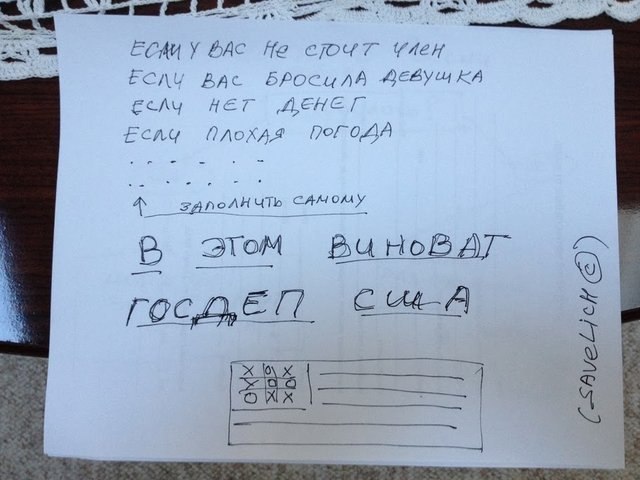 ЕСЛИ У ВАС НЕ СТОИТ ЧЛЕН
ЕСЛИ ВАС БРОСИЛА ДЕВУШКА
ЕСЛИ НЕТ ДЕНЕГ
ЕСЛИ ПЛОХАЯ ПОГОДА
. . . . . .
. . . . . .
ЗАПОЛНИТЬ САМОМУ
В ЭТОМ ВИНОВАТ
ГОСДЕП США
X O X
X O O
O X X
(-SAVELICH ©)